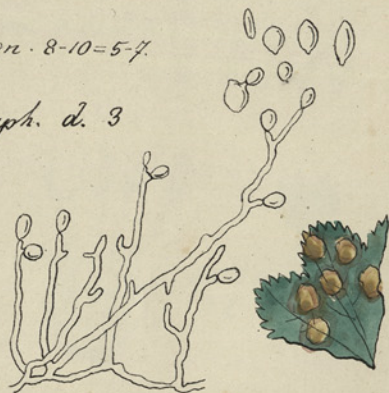 n. 8-10=5-7.
ph. d. 3